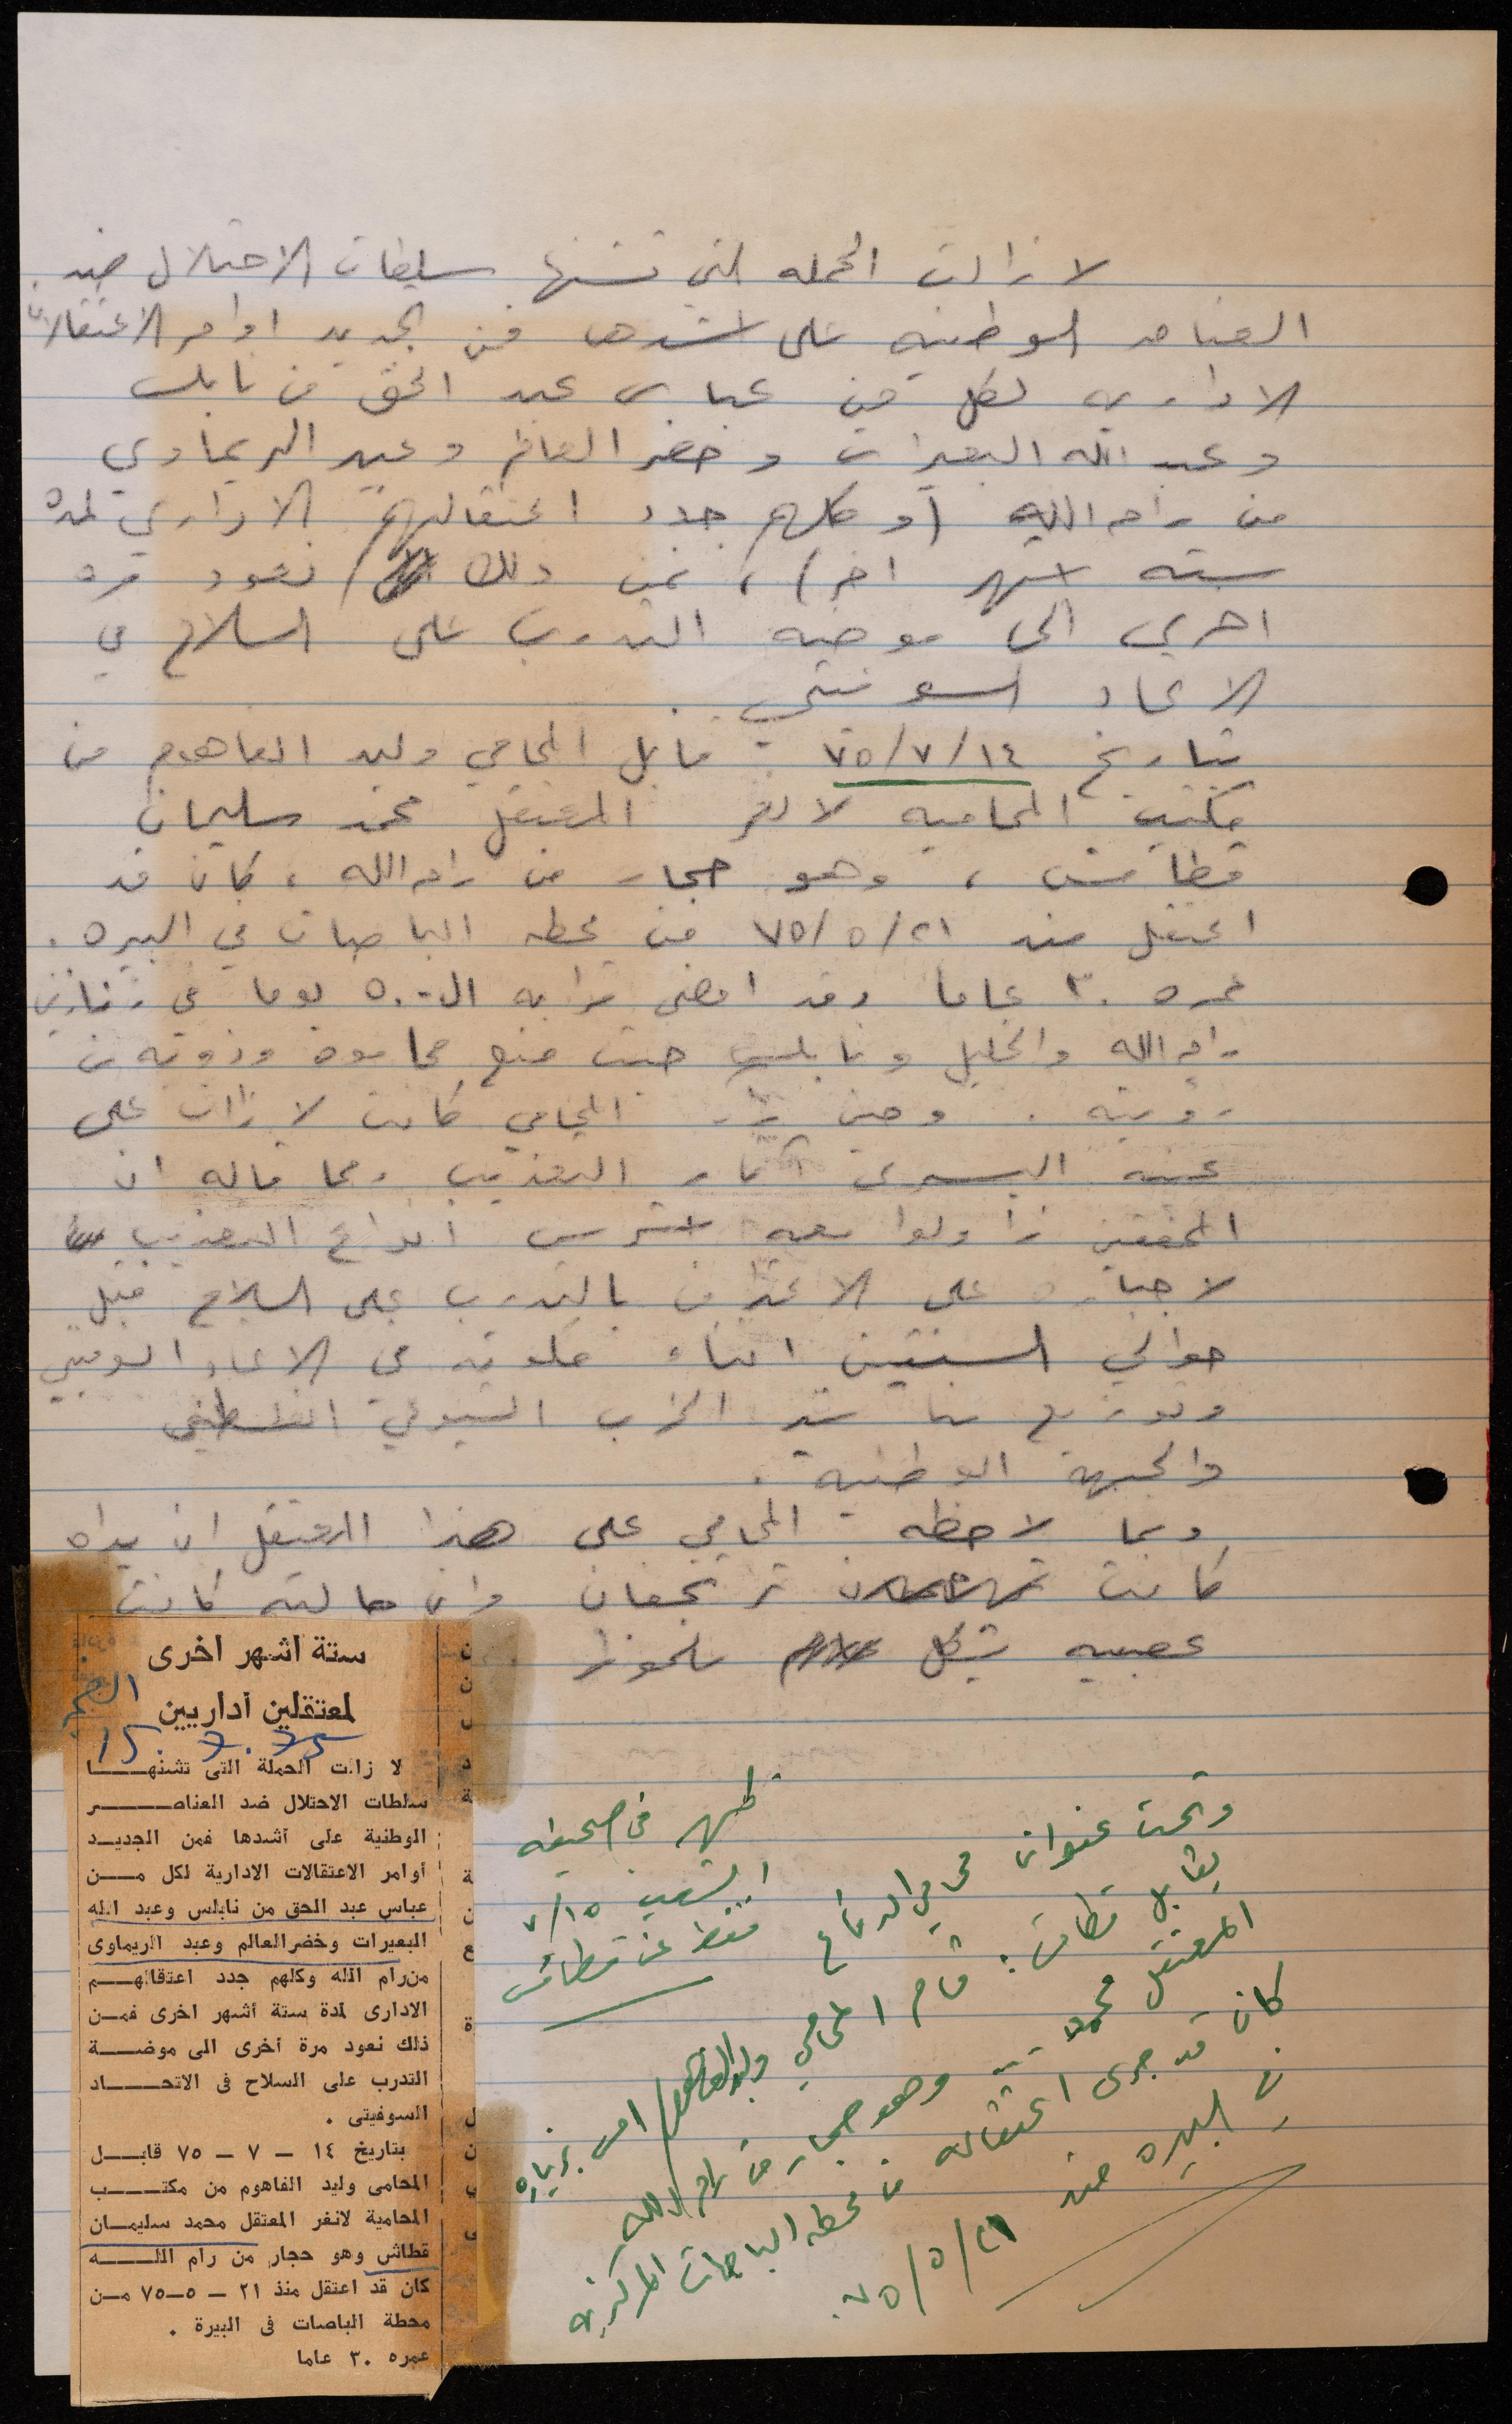 لا زالت الحمله التي تشنها سلطات الاحتلال ضد
العناصر الوطنيه على اشدها فمن الجديد اوامر الاعتقالات
الاداريه لكل من عباس عبد الحق من نابلس
وعبد الله البعيرات وخضر العالم وعبد الريماوي
من رام الله (وكلهم جدد اعتقالهم الاداري لمدة
سته اشهر اخر) ، فمن ذلك نعود مره
اخرى الى موضه التدرب على السلاح في
الاتحاد السوفيتي .
بتاريخ ١٤/٧/٧٥ قابل المحامي وليد الفاهوم من
مكتب المحاميه لانغر المعتقل محمد سليمان
قطاش ، وهو حجار من رام الله ، كان قد
اعتقل منذ ٢١/٥/٧٥ من محطه الباصات في البيره .
عمره ٣٠ عاما وقد امضى قرابه ال ٥٠ يوما في زنازين
رام الله والخليل ونابلس حيث منع محاموه وذووه من
رؤيته . وحين زار المحامي كانت لا زالت على
عينه اليسرى آثار التعذيب ومما قاله ان
المحققين زاولوا معه اشرس انواع التعذيب
لاجباره على الاعتراف بالتدرب على السلاح قبل
حوالي السنتين اثناء في الاتحاد السوفيتي
وتوزيع مناشير الحزب الشيوعي الفلسطيني
والجبهة الوطنية .
ومما لاحظه المحامي على هذا المعتقل ان يداه
كانت ترتجفان وان حالته كانت
عصبيه بشكل ملحوظ
ستة اشهر اخرى
لمعتقلين أداريين
15.7.75
لا زالت الحملة التى تشنهـــا
سلطات الاحتلال ضد العناصــر
الوطنية على أشدها فمن الجديـد
أوامر الاعتقالات الادارية لكل مــن
عباس عبد الحق من نابلس وعبد الله
البعيرات وخضر العالم وعبد الريماوى
من رام الله وكلهم جدد اعتقالهـم
الادارى لمدة ستة أشهر اخرى فمـن
ذلك نعود مرة أخرى الى موضـــة
التدرب على السلاح فى الاتحـــاد
السوفيتى .
بتاريخ ١٤ – ٧ – ٧٥ قابــل
المحامى وليد الفاهوم من مكتـــب
المحامية لانغر المعتقل محمد سليمـان
قطاش وهو حجار من رام اللــه
كان قد اعتقل منذ ٢١ – ٥–٧٥ مـن
محطة الباصات فى البيرة .
عمره ٣٠ عاما
ظهر في صحيفه
الشعب ١٥/٧
فقط عن قطاش
وتحت عنوان محامي الدفاع
يقابل قطاش : قام المحامي وليد الفاهوم امس بزياره
المعتقل محمد وهو حجار من رام الله
كان قد جرى اعتقاله من محطه الباصات المركزيه
في البيره منذ ٢١/٥/٧٥